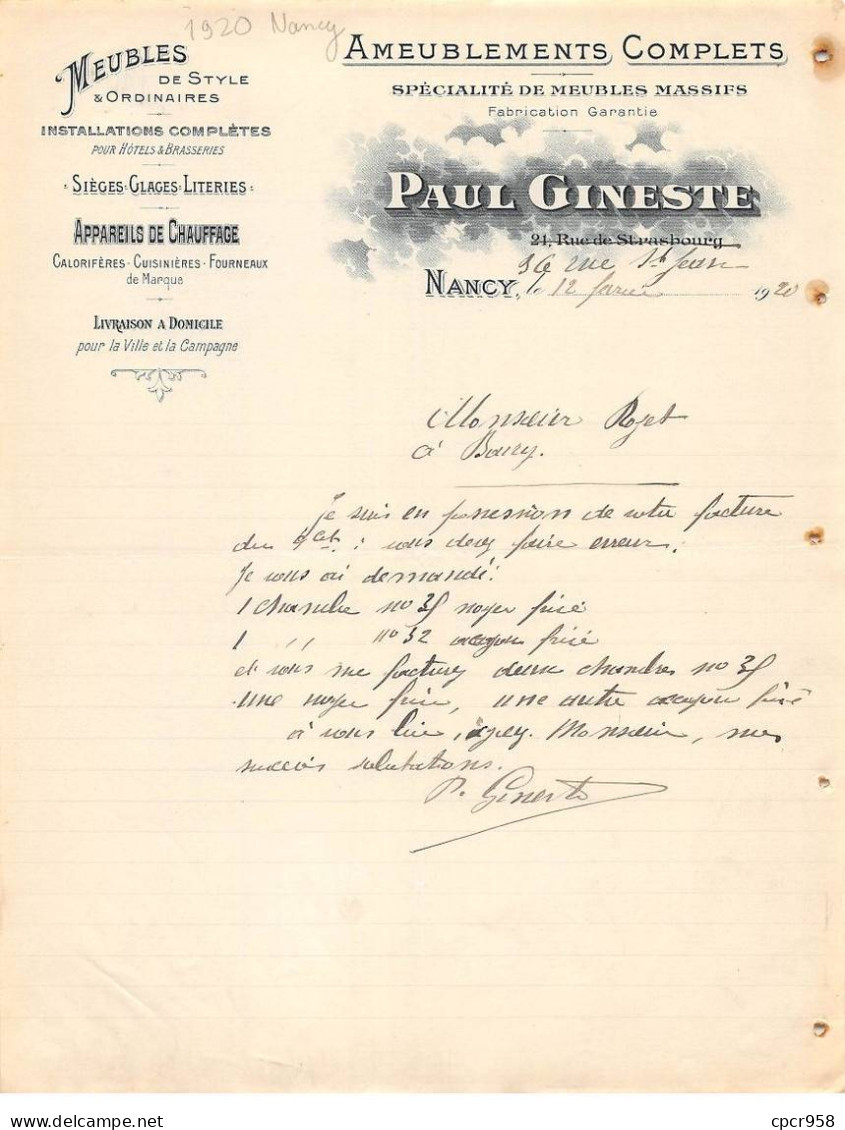 1920 Nancy
MEUBLES
DE STYLE
& ORDINAIRES
INSTALLATIONS COMPLÈTES
POUR HÔTELS & BRASSERIES
SIÈGES · GLACES · LITERIES
APPAREILS DE CHAUFFAGE
CALORIFÈRES · CUISINIÈRES · FOURNEAUX
de Marque
LIVRAISON A DOMICILE
pour la Ville et la Campagne
AMEUBLEMENTS COMPLETS
SPÉCIALITÉ DE MEUBLES MASSIFS
Fabrication Garantie
PAUL GINESTE
21, Rue de Strasbourg
36 rue St Jean
NANCY, le 12 1920
Monsieur
à
Je suis en possession de votre facture
du : vous devez faire erreur.
Je vous ai demandé.
1 chambre no 35 noyer frisé
1 " no 32 acajou frisé
et vous me facturez deux chambres no 35
une noyer frisé, une autre acajou frisé
à vous lire, agréez Monsieur, mes
sincères salutations.
P. Gineste
delcampe.net
cpcr958